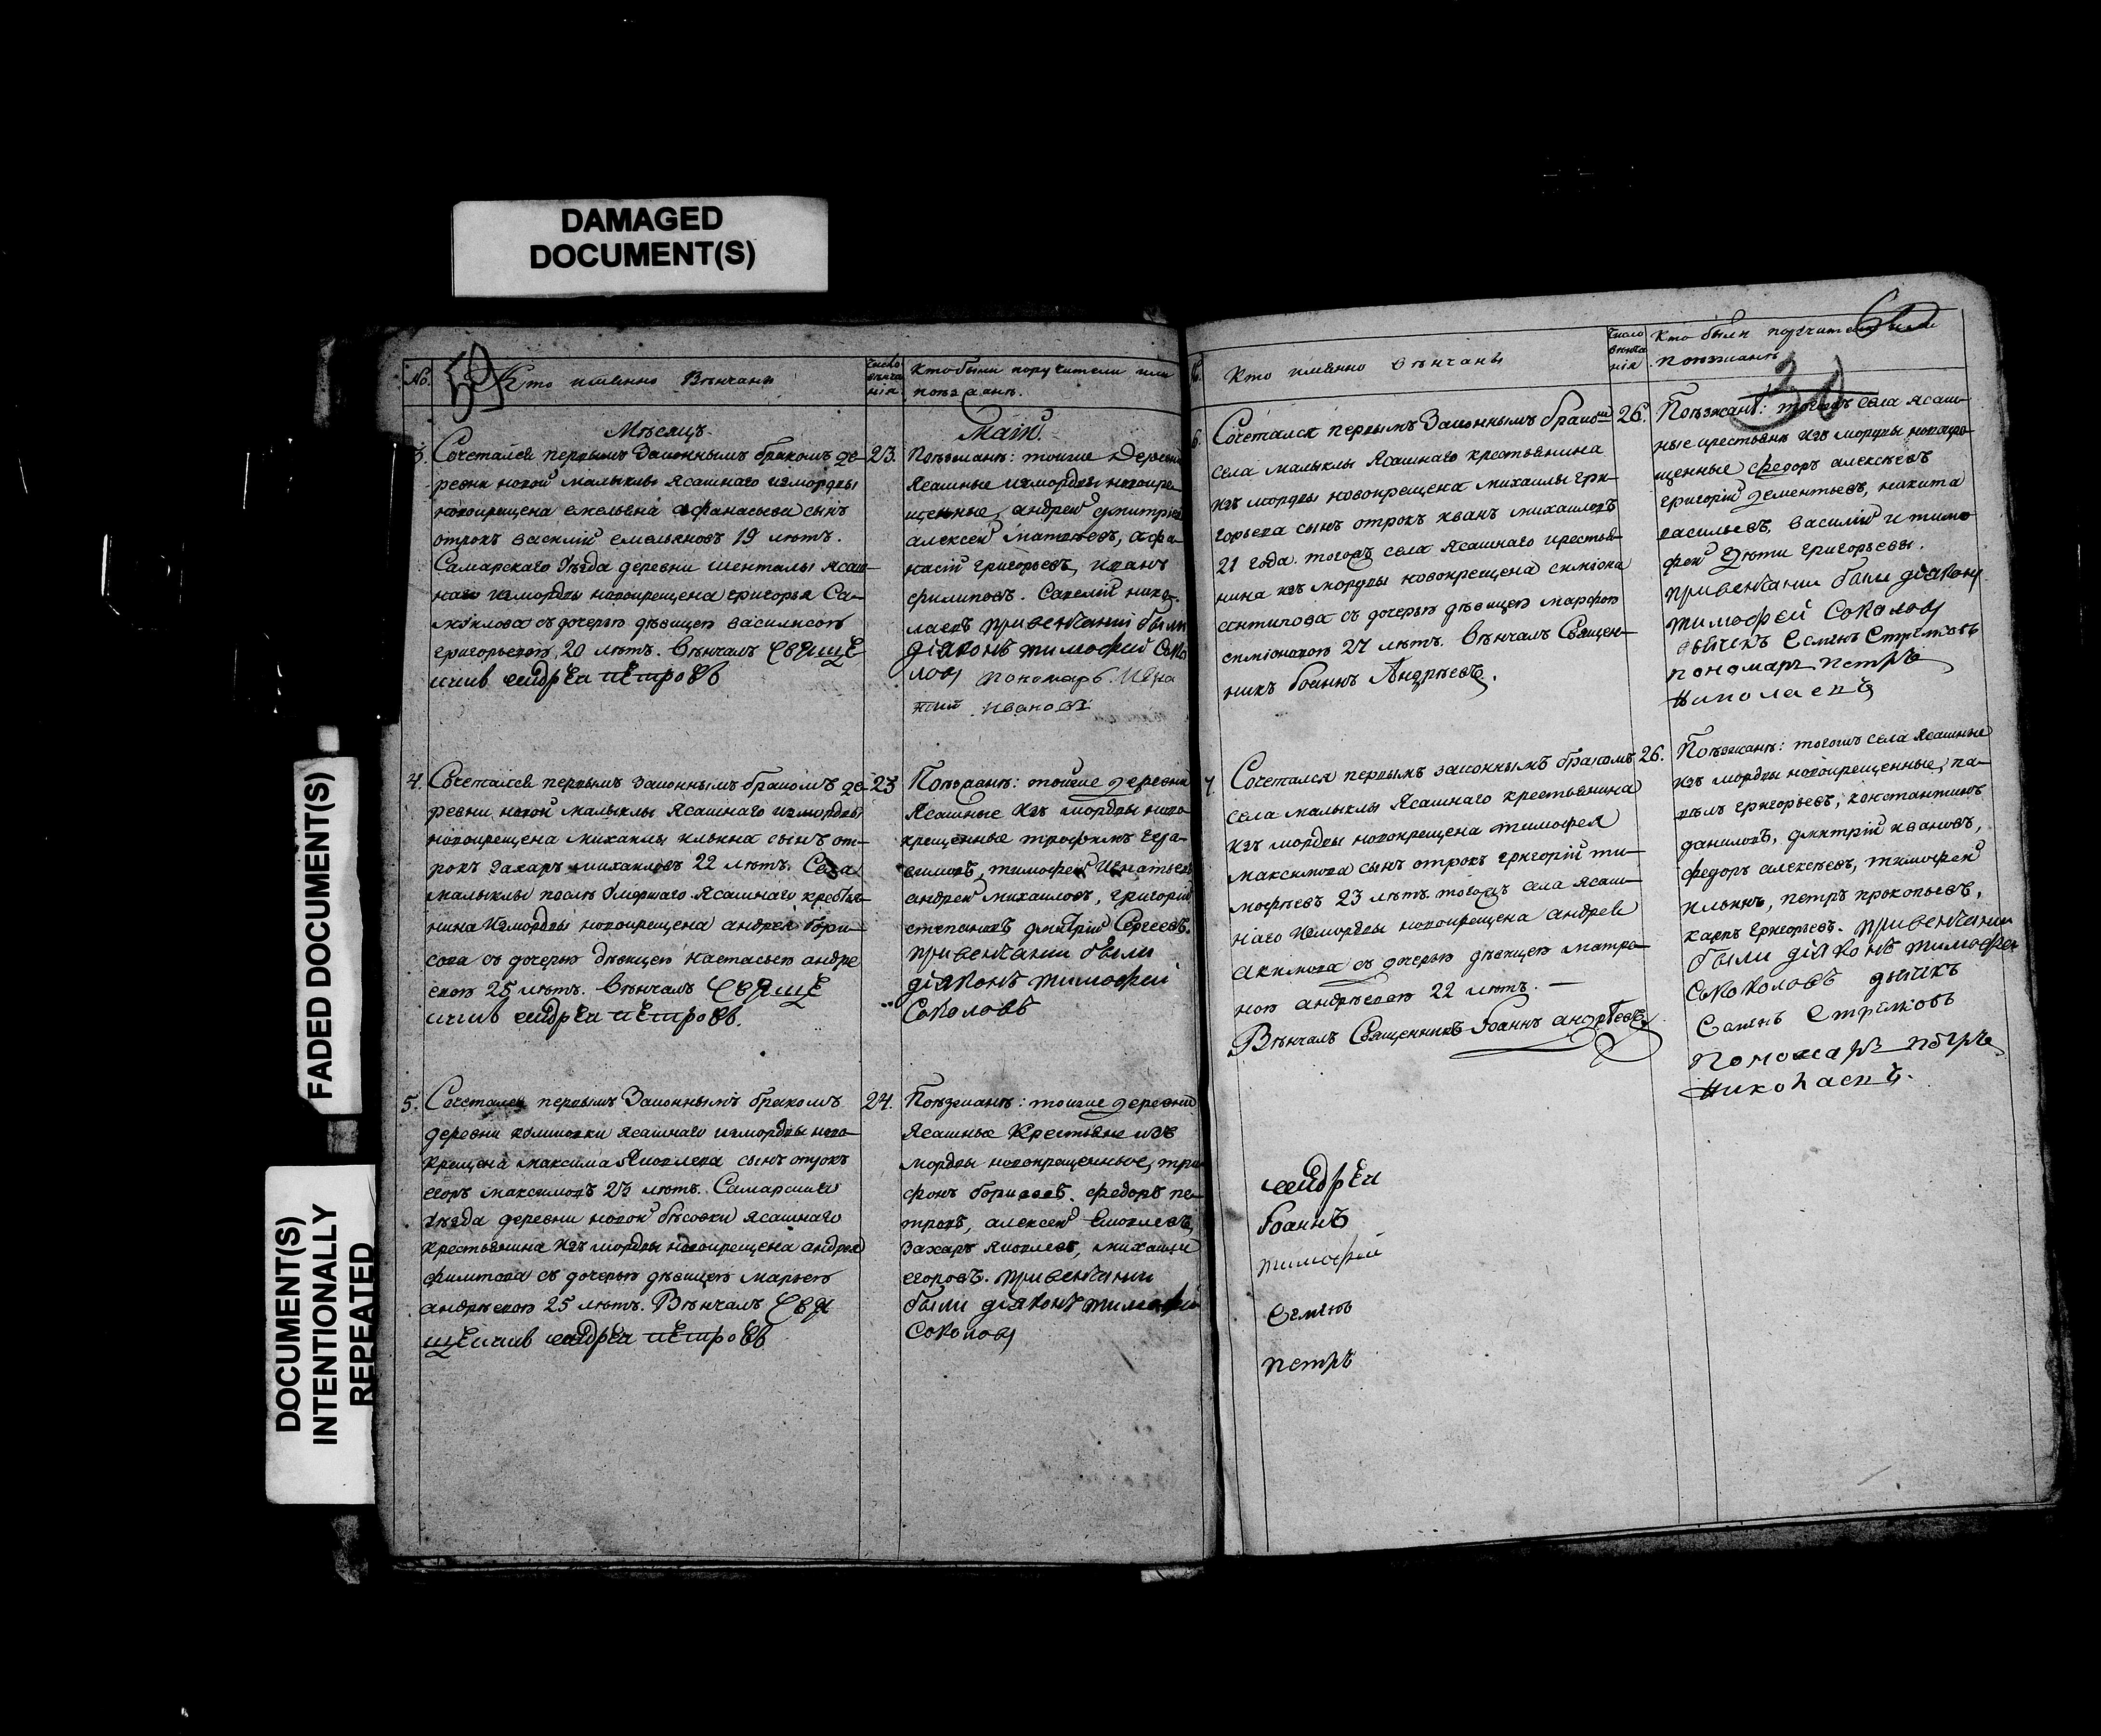 DAMAGED
DOCUMENT(S)
FADED DOCUMENT(S)
DOCUMENT(S)
INTENTIONALLY
REPEATED
№.
Кто имянно Вѣнчаны
Число
вѣнча
нія.
Кто были поручители или
поѣзжанѣ.
Мѣсяцъ
Маій.
3. Сочетался первымъ законнымъ бракомъ де-
ревни новой малыклы ясашнаго измордвы
новокрещена емельяна афанасьева сынъ
отрокъ василій емельяновъ 19 лѣтъ.
Самарскаго уѣзда деревни шенталы ясаш-
наго измордвы новокрещена григорья Са-
мойлова съ дочерью дѣвицею василисою
григорьевою, 20 лѣтъ. вѣнчалъ свяще
нникъ андрей петровъ
23.
Поѣзжанѣ: тоиже деревни
ясашные измордвы новокре-
щенные, андрей дмитріев
алексей матвѣевъ, афа-
насій григорьевъ, иванъ
филиповъ. Савелий нико-
лаевъ привенчаніи были
діяконъ тимофей соко
ловъ пономарь Игна
тий ивановъ
4. Сочетался первымъ законнымъ бракомъ де-
ревни новой малыклы ясашнаго измордвы
новокрещена михаилы ильина сынъ от-
рокъ захаръ михаиловъ 22 лѣтъ. Села
малыклы послѣ умершаго ясашнаго крестья-
нина измордвы новокрещена андрея бори-
сова съ дочерью дѣвицею настасьею андре
евою 25 лѣтъ. вѣнчалъ свяще
нникъ андрей петровъ.
23
Поѣзжанѣ: тоиже деревни
ясашные изъ мордвы ново-
крещенные трофимъ гера-
симовъ, тимофей Игнатьевъ
андрей михаиловъ, григорій
степановъ дмитрій Сергеевъ.
привенчании были
діяконъ тимофей
соколовъ
5. Сочетался первымъ законнымъ бракомъ
деревни ясашнаго измордвы ново-
крещена максима Яковлева сынъ отрокъ
егоръ максимовъ 23 лѣтъ. Самарскаго
уѣзда деревни новой бѣсовки ясашнаго
крестьянина изъ мордвы новокрещена андрея
филипова съ дочерью дѣвицею марьею
андрѣевою 25 лѣтъ. Вѣнчалъ свя
щенникъ андрей петровъ
24.
Поѣзжанѣ: тоиже деревни
ясашные крестьяне изъ
мордвы новокрещенные, три
фонъ борисовъ. федоръ пе-
тровъ, алексей
захаръ яковлевъ, михаила
егоровъ. привенчании
были діяконъ тимофей
соколовъ
Кто имянно вѣнчаны
Число
вѣнча
нія
Кто были поручители или
поѣзжанѣ
30
6. Сочетался первымъ законнымъ бракомъ
села малыклы ясашнаго крестьянина
изъ мордвы новокрещена михаилы гри-
горьева сынъ отрокъ иванъ михаиловъ
21 года. тогожъ села ясашнаго крестья-
нина изъ мордвы новокрещена симіона
антипова съ дочерью дѣвицею марфою
симіоновою 27 лѣтъ. вѣнчалъ Священ-
никъ Іоаннъ Андрѣевъ.
26.
Поѣзжанѣ: тогожъ села ясаш-
ные крестьянѣ изъ мордвы новокре-
щенные федоръ алексѣевъ
григорій дементьевъ, никита
васильевъ, василій и тимо
фей дѣти григорьевы.
привенчании были діяконъ
тимофей соколовъ
дьячекъ Семенъ Стрелковъ
пономарь петръ
Николаевъ
7. Сочетался первымъ законнымъ бракомъ
села малыклы ясашнаго крестьянина
изъ мордвы новокрещена тимофея
максимова сынъ отрокъ григорій ти-
мофѣевъ 23 лѣтъ. тогожъ села ясаш-
наго измордвы новокрещена андрея
акимова съ дочерью дѣвицею матре-
ною андрѣевою 22 лѣтъ. —
Вѣнчалъ Священникъ Іоаннъ андрѣевъ
26.
Поѣзжанѣ: тогожъ села ясашные
изъ мордвы новокрещенные, па-
велъ григорьевъ, константинъ
даниловъ, дмитрій ивановъ,
федоръ алексѣевъ, тимофей
ильинъ, петръ прокопьевъ,
карпъ григорьевъ. привенчании
были діяконъ тимофей
Соколовъ дьячекъ
Семенъ Стрелковъ
Пономарь петръ
Николаевъ.
андрей
Іоаннъ
тимофей
Семенъ
петръ